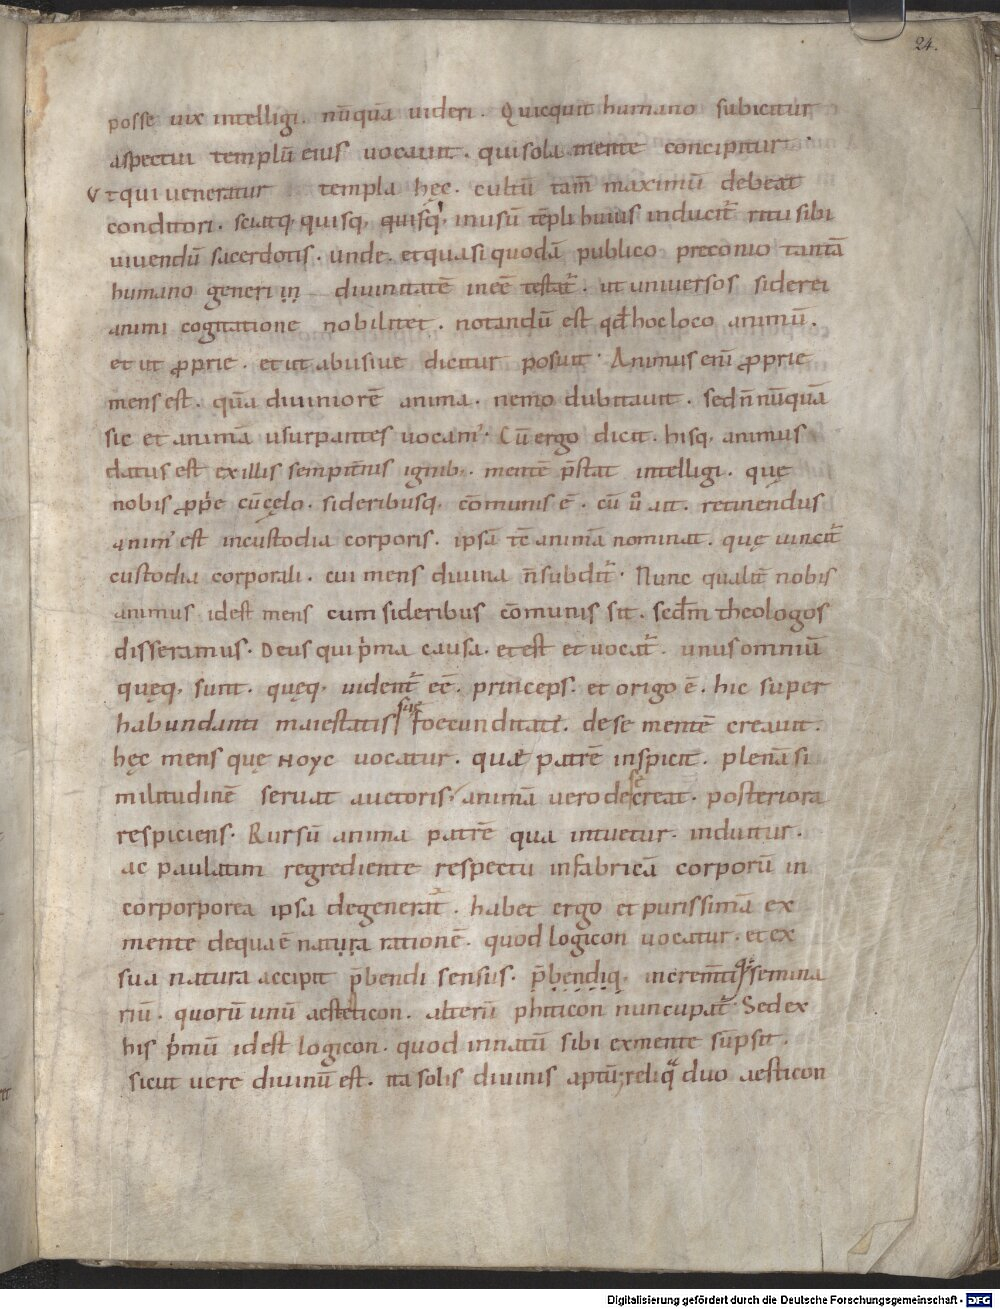 24.
posse uix intelligi. nūquā uideri. Quicquit humano subicitur
aspectui templū eius uocauit. qui sola mente concipitur
Vt qui ueneratur templa hęc. cultū tam̄ maximū debeat
conditori. sciatq; quisq; quisq; in usū tēpli huius inducit᷑ ritu sibi
uiuendū sacerdotis. unde. et quasi quodā publico preconio tantā
humano generi in diuinitatē ineē testat᷑. ut uniuersos siderei
animi cogitatione nobilitet. notandū est qđ hoc loco animū.
et ut ꝓprie. et ut abusiue dicitur posuit. Animus enī ꝓprie
mens est. quā diuiniorē anima. nemo dubitauit. sed n̄ nūquā
sic et animā usurpantes uocam᷒. Cū ergo dicit. hisq; animus
datus est ex illis sempit̄nis ignib;. mentē p̄stat intelligi. quę
nobis ꝓp̍e cū cęlo. sideribusq; cōmunis ē. cū u̍o ait. retinendus
anim᷒ est in custodia corporis. ipsā tē animā nominat. quę uincit᷑
custodia corporali. cui mens diuina n̄ subdit᷑. Nunc qualit̄ nobis
animus idest mens cum sideribus cōmunis sit. secđm theologos
disseramus. Deus qui p̍ma causa. et est et uocat᷑. unus omniū
quęq; sunt. quęq; uident᷑ eē. princeps. et origo ē. hic super
habundanti maiestatis suę foecunditate. de se mentē creauit.
hęc mens quę ɴoyc uocatur. quae patrē inspicit. plenā si
militudinē seruat auctoris, animā uero de se creat. posteriora
respiciens. Rursū anima patrē qua intuetur. induitur.
ac paulatim regrediente respectu in fabricā corporū in
corporporea ipsa degenerat᷑. habet ergo et purissimā ex
mente de qua ē natura rationē. quod logicon uocatur. et ex
sua natura accipit p̄bendi sensus. p̄bendiq; increm̄tiq; semina
riū. quorū unū aesteticon. alterū phiticon nuncupat᷑. Sed ex
his p̍mū idest logicon. quod innatū sibi ex mente sūpsit.
sicut uere diuinū est. ita solis diuinis aptū; reliqᵃ duo aesticon
Digitalisierung gefördert durch die Deutsche Forschungsgemeinschaft - DFG